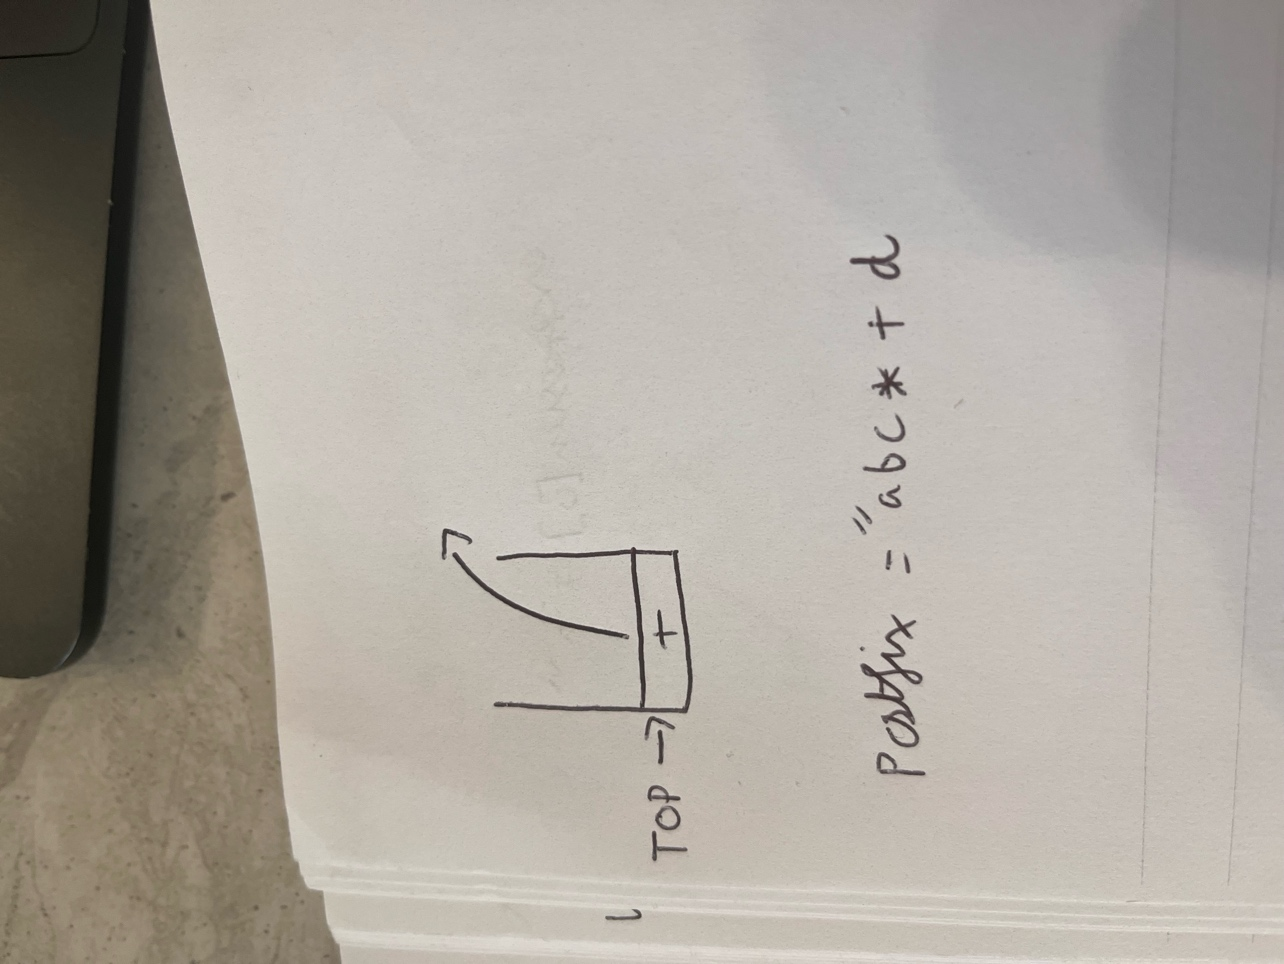 +
TOP →
Postfix = "abc*+d